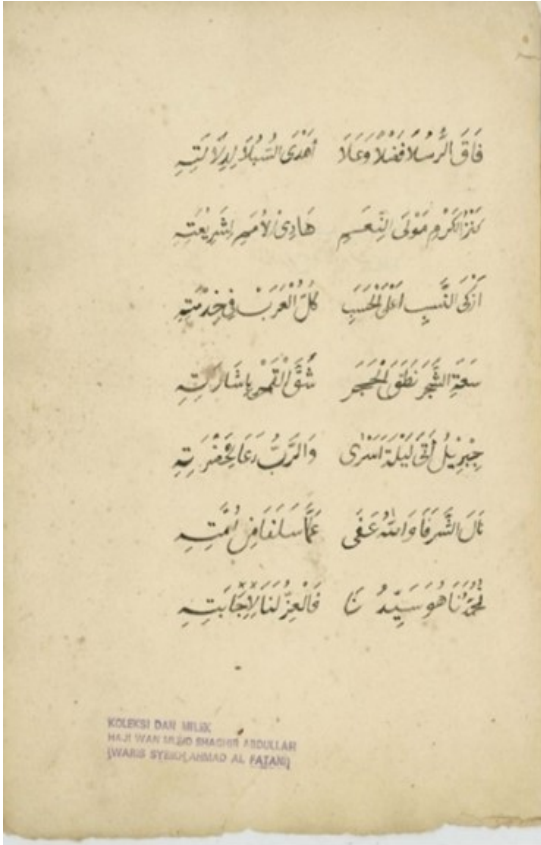 فَاقَ الرُّسُلَا فَضْلًا وَعَلَا اَهْدَى السُّبُلَا لِدِلَالَتِهِ
كَنْزُ الْكَرَمِ مَوْلَى النِّعَمِ هَادِى الْاُمَمِ لِشَرِيْعَتِهِ
اَزْكَى النَّسَبِ اَعْلَى الْحَسَبِ كُلُّ الْعَرَبْ فِى خِدْمَتِهِ
سَعَةِ الشَّجَرَ نَطَقَ الْحَجَرَ شُقَّ الْقَمَرْ بِاِشَارَتِهِ
جِبْرِيْلُ اَتَى لَيْلَةَ اَسْرَى وَالرَّبُّ دَعَا لِحَضْرَتِهِ
نَالَ الشَّرَفَا وَاللهُ عَفَى عَمَّا سَلَفَا مِنْ اُمَّتِهِ
فَمُحَمَّدُنَا هُوَ سَيِّدُنَا فَالْعِزُّ لَنَا لِاِجَابَتِهِ
KOLEKSI DAN MILIK
HAJI WAN MOHD SHAGHIR ABDULLAH
(WARIS SYEIKH AHMAD AL FATANI)